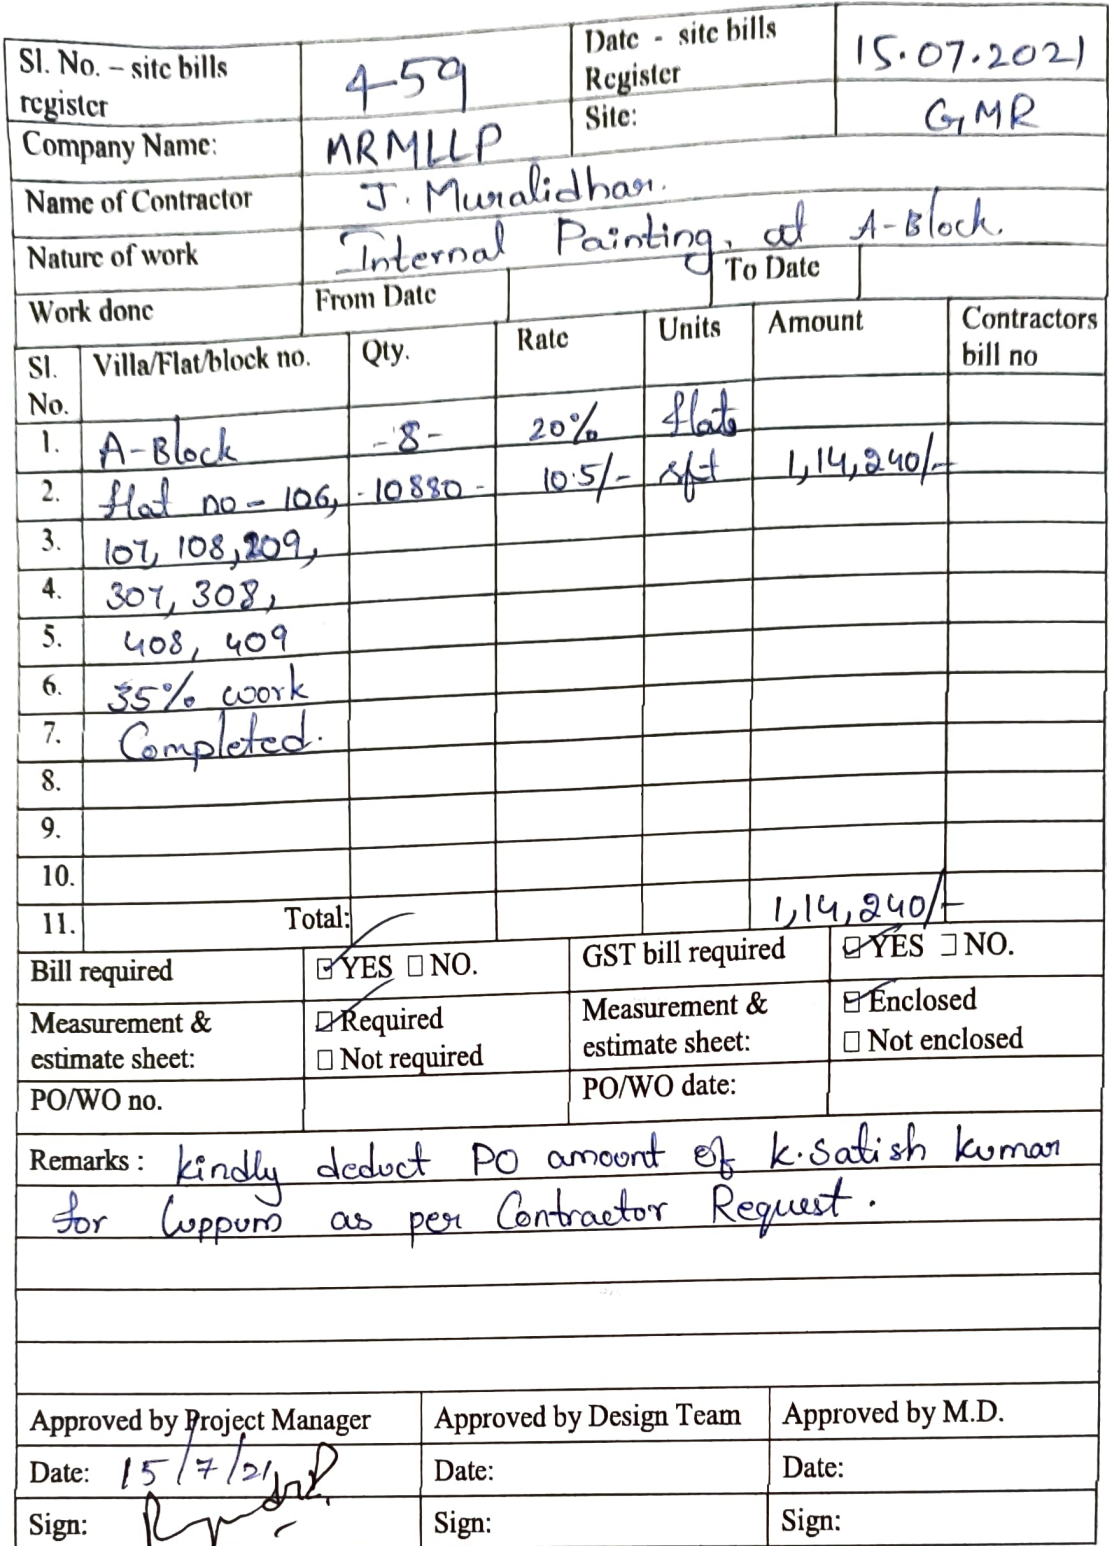 Sl. No. – site bills register 459 Date - site bills Register 15.07.2021
Site: GMR
Company Name: MRMLLP
Name of Contractor J. Muralidhar.
Nature of work Internal Painting, at A-Block.
Work done From Date To Date
Sl. No. Villa/Flat/block no. Qty. Rate Units Amount Contractors bill no
1. A-Block -8- 20% flats
2. flat no - 106, -10880- 10.5/- sft 1,14,240/-
3. 107, 108, 209,
4. 307, 308,
5. 408, 409
6. 35% work
7. Completed.
8.
9.
10.
11. Total: 1,14,240/-
Bill required YES NO. GST bill required YES NO.
Measurement & estimate sheet: Required Not required Measurement & estimate sheet: Enclosed Not enclosed
PO/WO no. PO/WO date:
Remarks : kindly deduct PO amount of k.Satish kumar
for Luppum as per Contractor Request.
Approved by Project Manager Approved by Design Team Approved by M.D.
Date: 15/7/21 Date: Date:
Sign: Sign: Sign: